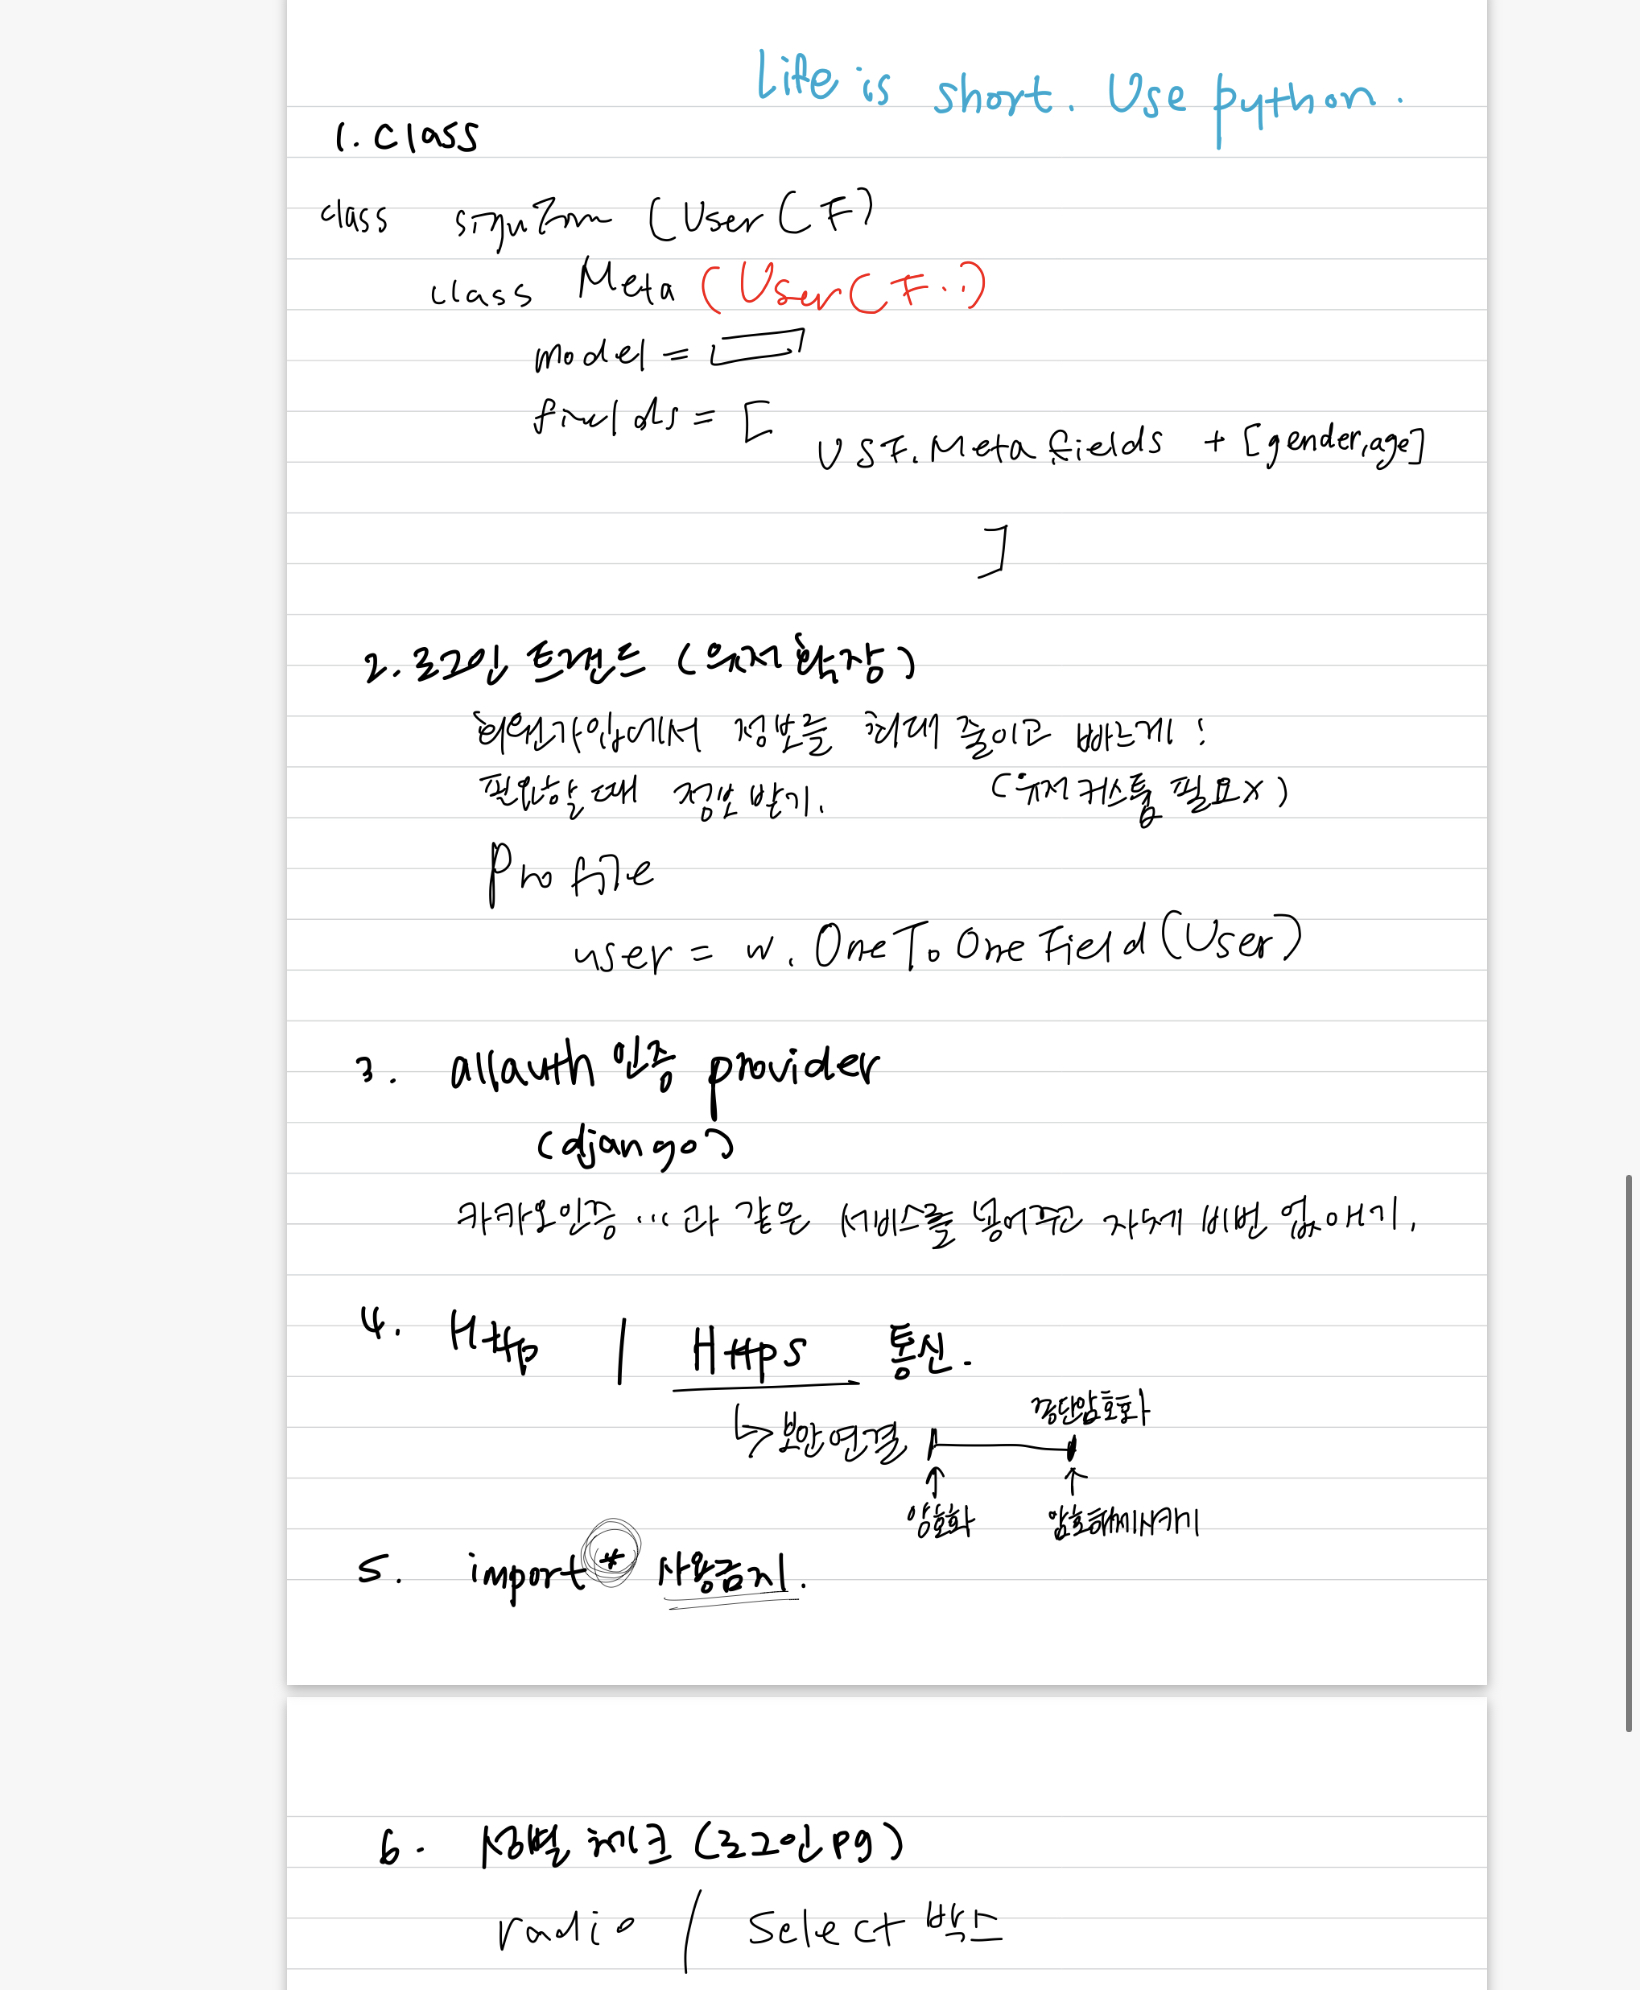 Life is short. Use python.
1. class
class (User CF)
class Meta (User CF..)
model =
fields = [
USF.Meta fields + [gender,age]
]
2. 로그인 트랜드 (유저 확장)
회원가입에서 정보를 최대 줄이고 빠르게!
필요할 때 정보 받기.
(유저 커스텀 필요x)
Profile
user = m. OneToOneField(User)
3. allauth 인증 provider
(django)
카카오인증 ... 과 같은 서비스를 넣어주고 자체 비번 없애기.
4. Http | Https 통신.
종단암호화
↳ 보안연결
암호화 암호해제시키기
5. import * 사용금지.
6. 성별 체크 (로그인 pg)
radio / Select 박스